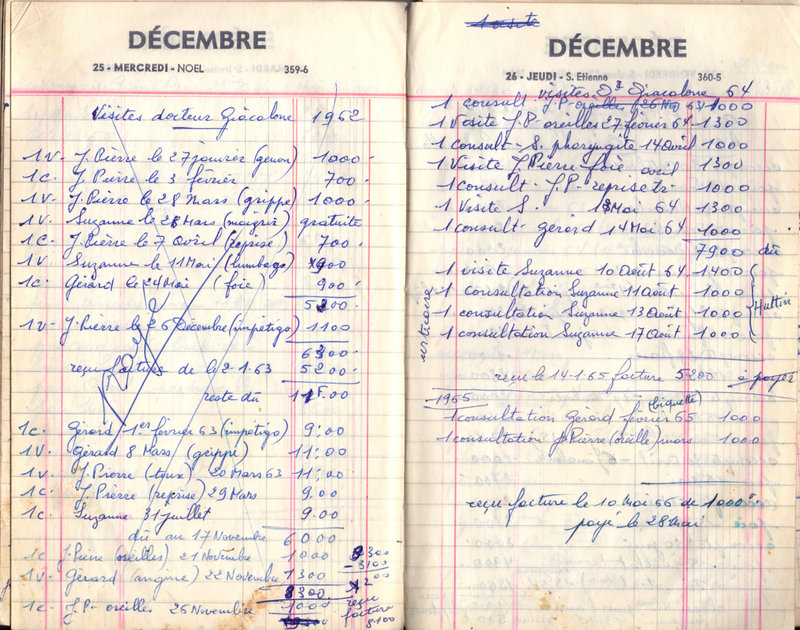 DÉCEMBRE
25 - MERCREDI - NOEL 359-6
Visites docteur Giacalone 1962
1V. J. Pierre le 27 janvier (genou) 1000
1C. J. Pierre le 3 février 700
1V. J. Pierre le 28 Mars (grippe) 1000
1V. Suzanne le 28 Mars (maigrir) gratuite
1C. J. Pierre le 7 Avril (reprise) 700
1V. Suzanne le 11 Mai (lumbago) 900
1c. Gérard le 24 Mai (foie) 900
5200
1V. J. Pierre le 26 Décembre (impétigo) 1100
6300
reçu facture de le 2-1-63 5200
reste dû 11 00
1c. Gérard 1er février 63 (impétigo) 9.00
1V. Gérard 8 Mars (grippe) 11.00
1V. J. Pierre (toux) 20 Mars 63 11.00
1c. J. Pierre (reprise) 29 Mars 9.00
1c. Suzanne 31 juillet 9.00
dû au 17 Novembre 6000
1c J. Pierre (oreilles) 21 Novembre 1000
1V. Gérard (angine) 22 Novembre 1300
8300
1c. J. P. oreilles 26 Novembre 1000
8300
- 3100
reçu
facture
8100
1 visite
DÉCEMBRE
26 - JEUDI - S. Etienne 360-5
visites Dr Giacalone 64
1 consult. J. P. oreilles (26 Nov 63) 1000
1 Visite J. P. oreilles 27 février 64 1300
1 consult - S. pharyngite 14 avril 1000
1 Visite J. Pierre foie avril 1300
1 consult - J. P. reprise tr. 1000
1 Visite S. 13 Mai 64 1300
1 consult - Gérard 14 Mai 64 1000
7900 dû
1 visite Suzanne 10 Août 64 1400
1 consultation Suzanne 11 Août 1000
1 consultation Suzanne 13 Août 1000
1 consultation Suzanne 17 Août 1000
urticaire
Huttin
reçu le 14-1-65 facture 5200 à payer
1965
1 consultation Gérard février 65 (biquette) 1000
1 consultation J. Pierre (oreille) mars 1000
reçu facture le 10 Mai 66 de 1000
payé le 28 Mai